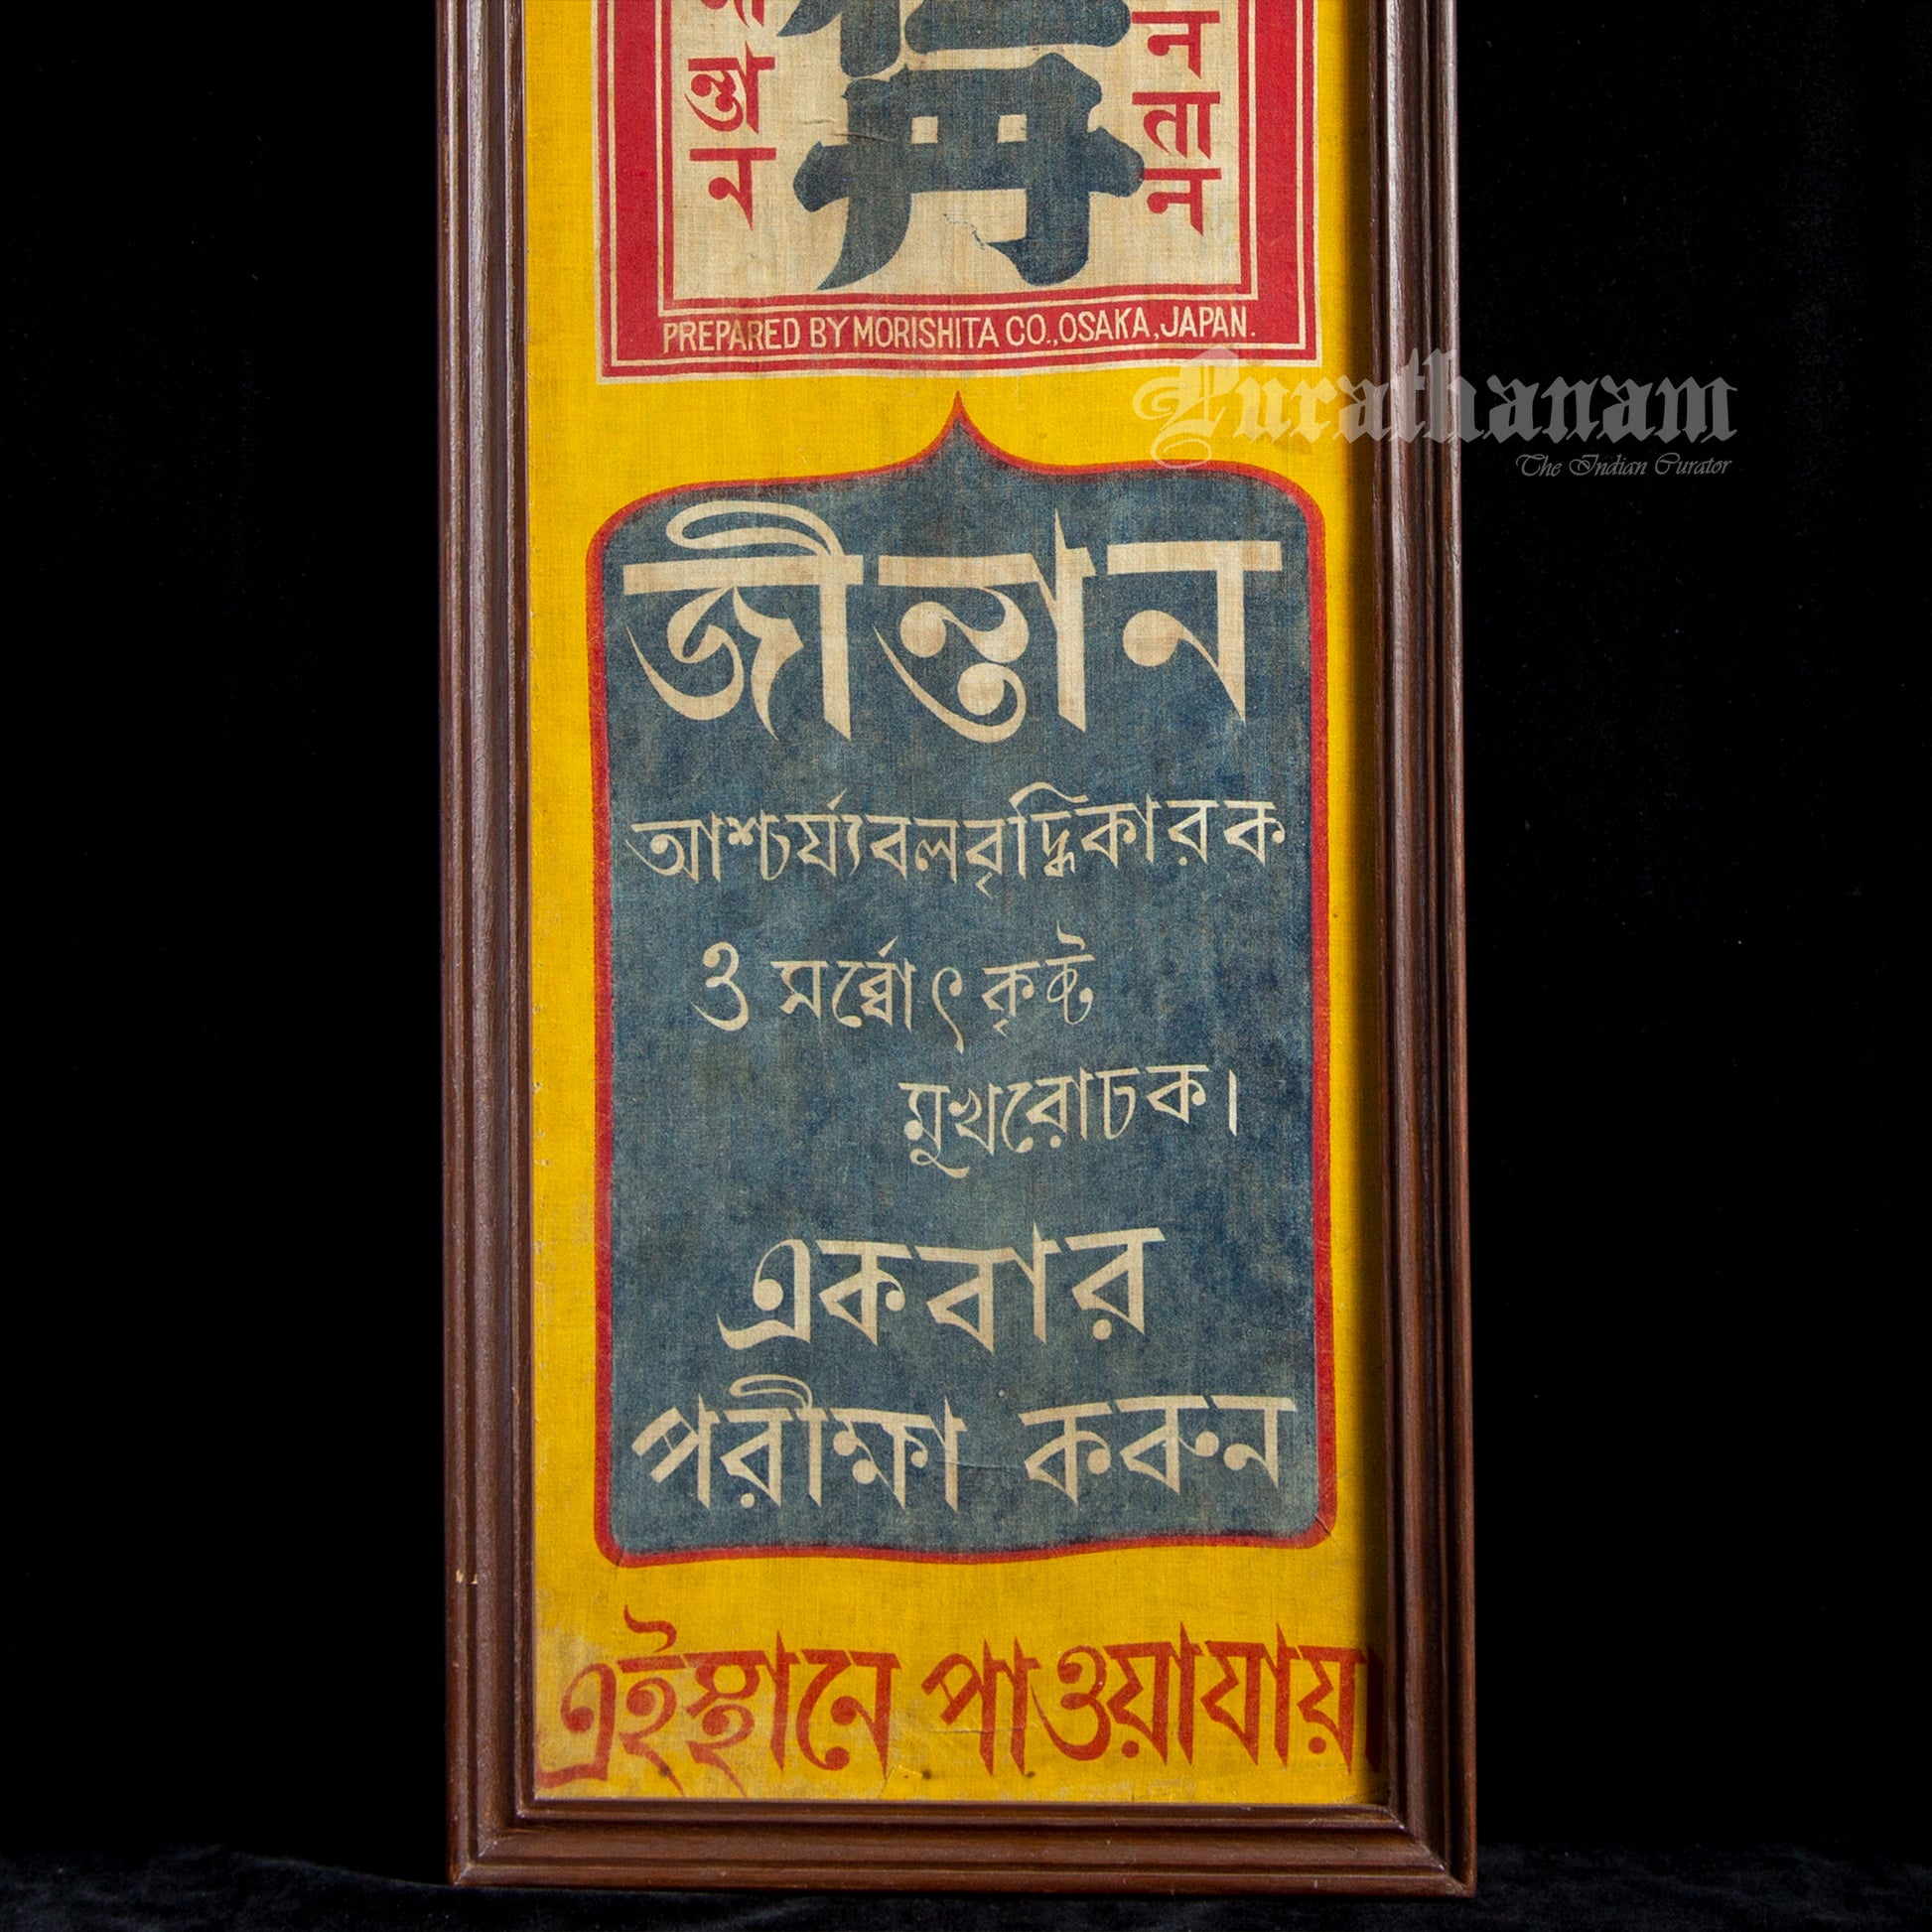 仁丹
PREPARED BY MORISHITA CO., OSAKA, JAPAN.
Purathanam
The Indian Curator
জীন্তান
আশ্চর্য্যবলবৃদ্ধিকারক
ও সর্ব্বোৎকৃষ্ট
মুখরোচক।
একবার
পরীক্ষা করুন
এইস্থানে পাওয়াযায়।